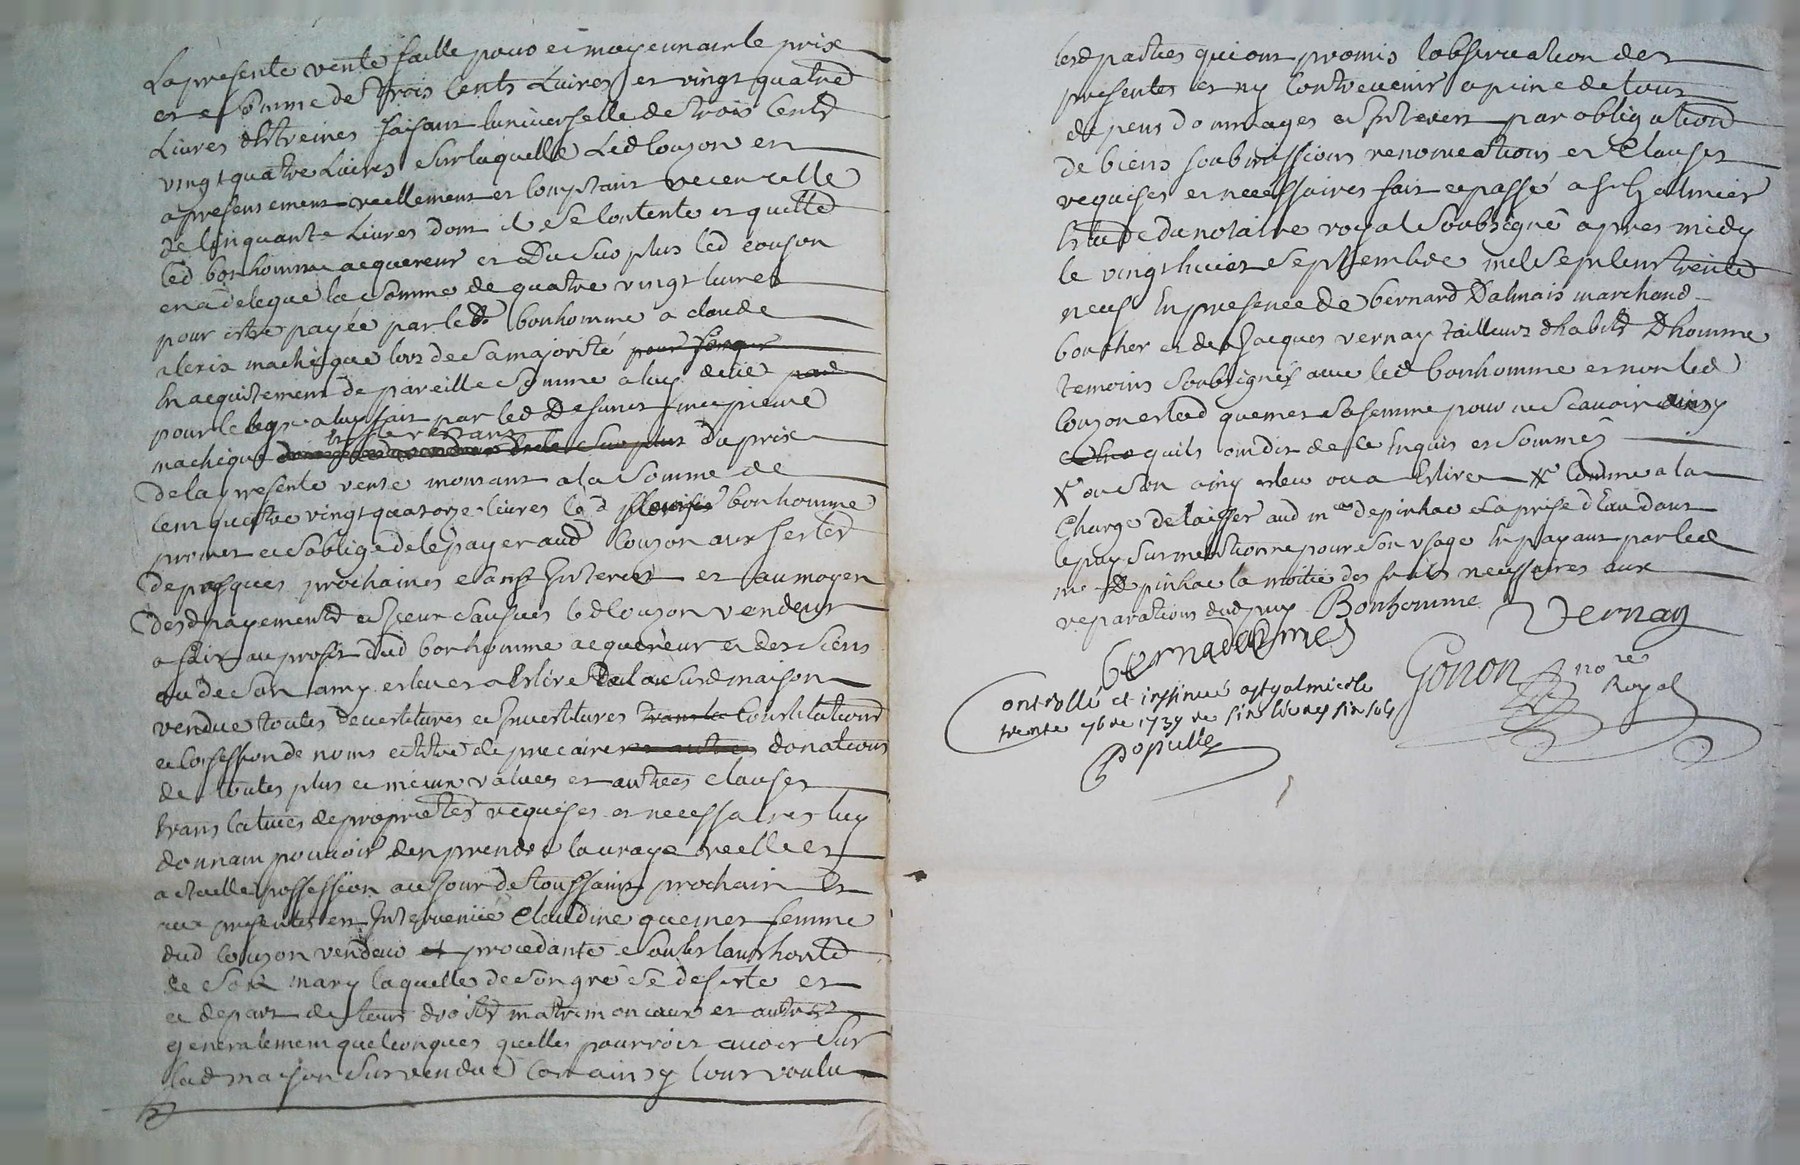 La presente vente faitte pour et moyennant le prix
et e somme de trois Cents Livres et vingt quatre
Livres dEstreines faisant luniverselle de trois Cents
vingt quatre Livres sur laquelle Led Couzon en
a presentement reellement et Comptant receu celle
de Cinquante Livres dont il se Contente et quitte
led bonhomme acquereur et du surplus led Couzon
en a delegue la somme de quatre vingt Livres
pour estre payée par led bonhomme a claude
alexix machique lors de sa majorité
En acquittement de pareille somme a luy deüe
pour le legs a luy fait par led Defunct pierre
machique restant du prix
De la presente vente montant a la somme de
Cent quatre vingt quatorze Livres led bonhomme
promet et soblige de le payer aud Couzon aux festes
de pasques prochaines sans Interest et au moyen
desd payements led Couzon vendeur
a fait au profit dud bonhomme acquereur et des siens
ou de son amy esleu et a Eslire de lad susd maison
vendue toutes devestitures et Investitures Constitutions
et Confession de noms et titre de precaire donations
de toutes plus et mieux values et autres clauses
translatives de proprietés requises et necessaires luy
donnant pouvoir den prendre la vraye reelle et
actuelle possession au Jour de toussaint prochain Et
aux presentes est Intervenüe Claudine quemet femme
dud Couzon vendeur procedante soubs lauthorité
de son mary laquelle de son gré se desiste et
et depart de tous droits matrimoniaux et autres
generalement quelconques quelle pourroit avoir sur
lad maison survendue Car ainsy lont voulu
lesd parties qui ont promis lobservation des
presentes et ny Contrevenir a peine de tous
depens dommages et Interest par obligation
de biens soubmissions renonciations et Clauses
requises et necessaires fait et passé a st galmier
Etude du notaire royal soubsigné apres midy
le vingt huict septembre mil sept cent trente
neuf En presence de bernard Dalmais marchand
boucher et de Jacques vernay tailleur dhabits Dhomme
temoins soubsignés avec led bonhomme et non led
Couzon et lad quemet sa femme pour ne scavoir ainsy
quils ont dit de ce Enquis et sommés
X ou son amy esleu ou a Eslire X Comme a la
Charge de laisser aud depinhac la prise dEau dans
le puy surmentionne pour son usage En payant par led
depinhac la moitié des frais necessaires aux
reparations dud puy Bonhomme Vernay
Gonon no re
Royal
Controllé et insinué a st galmier le
trente 7bre 1739
Populle